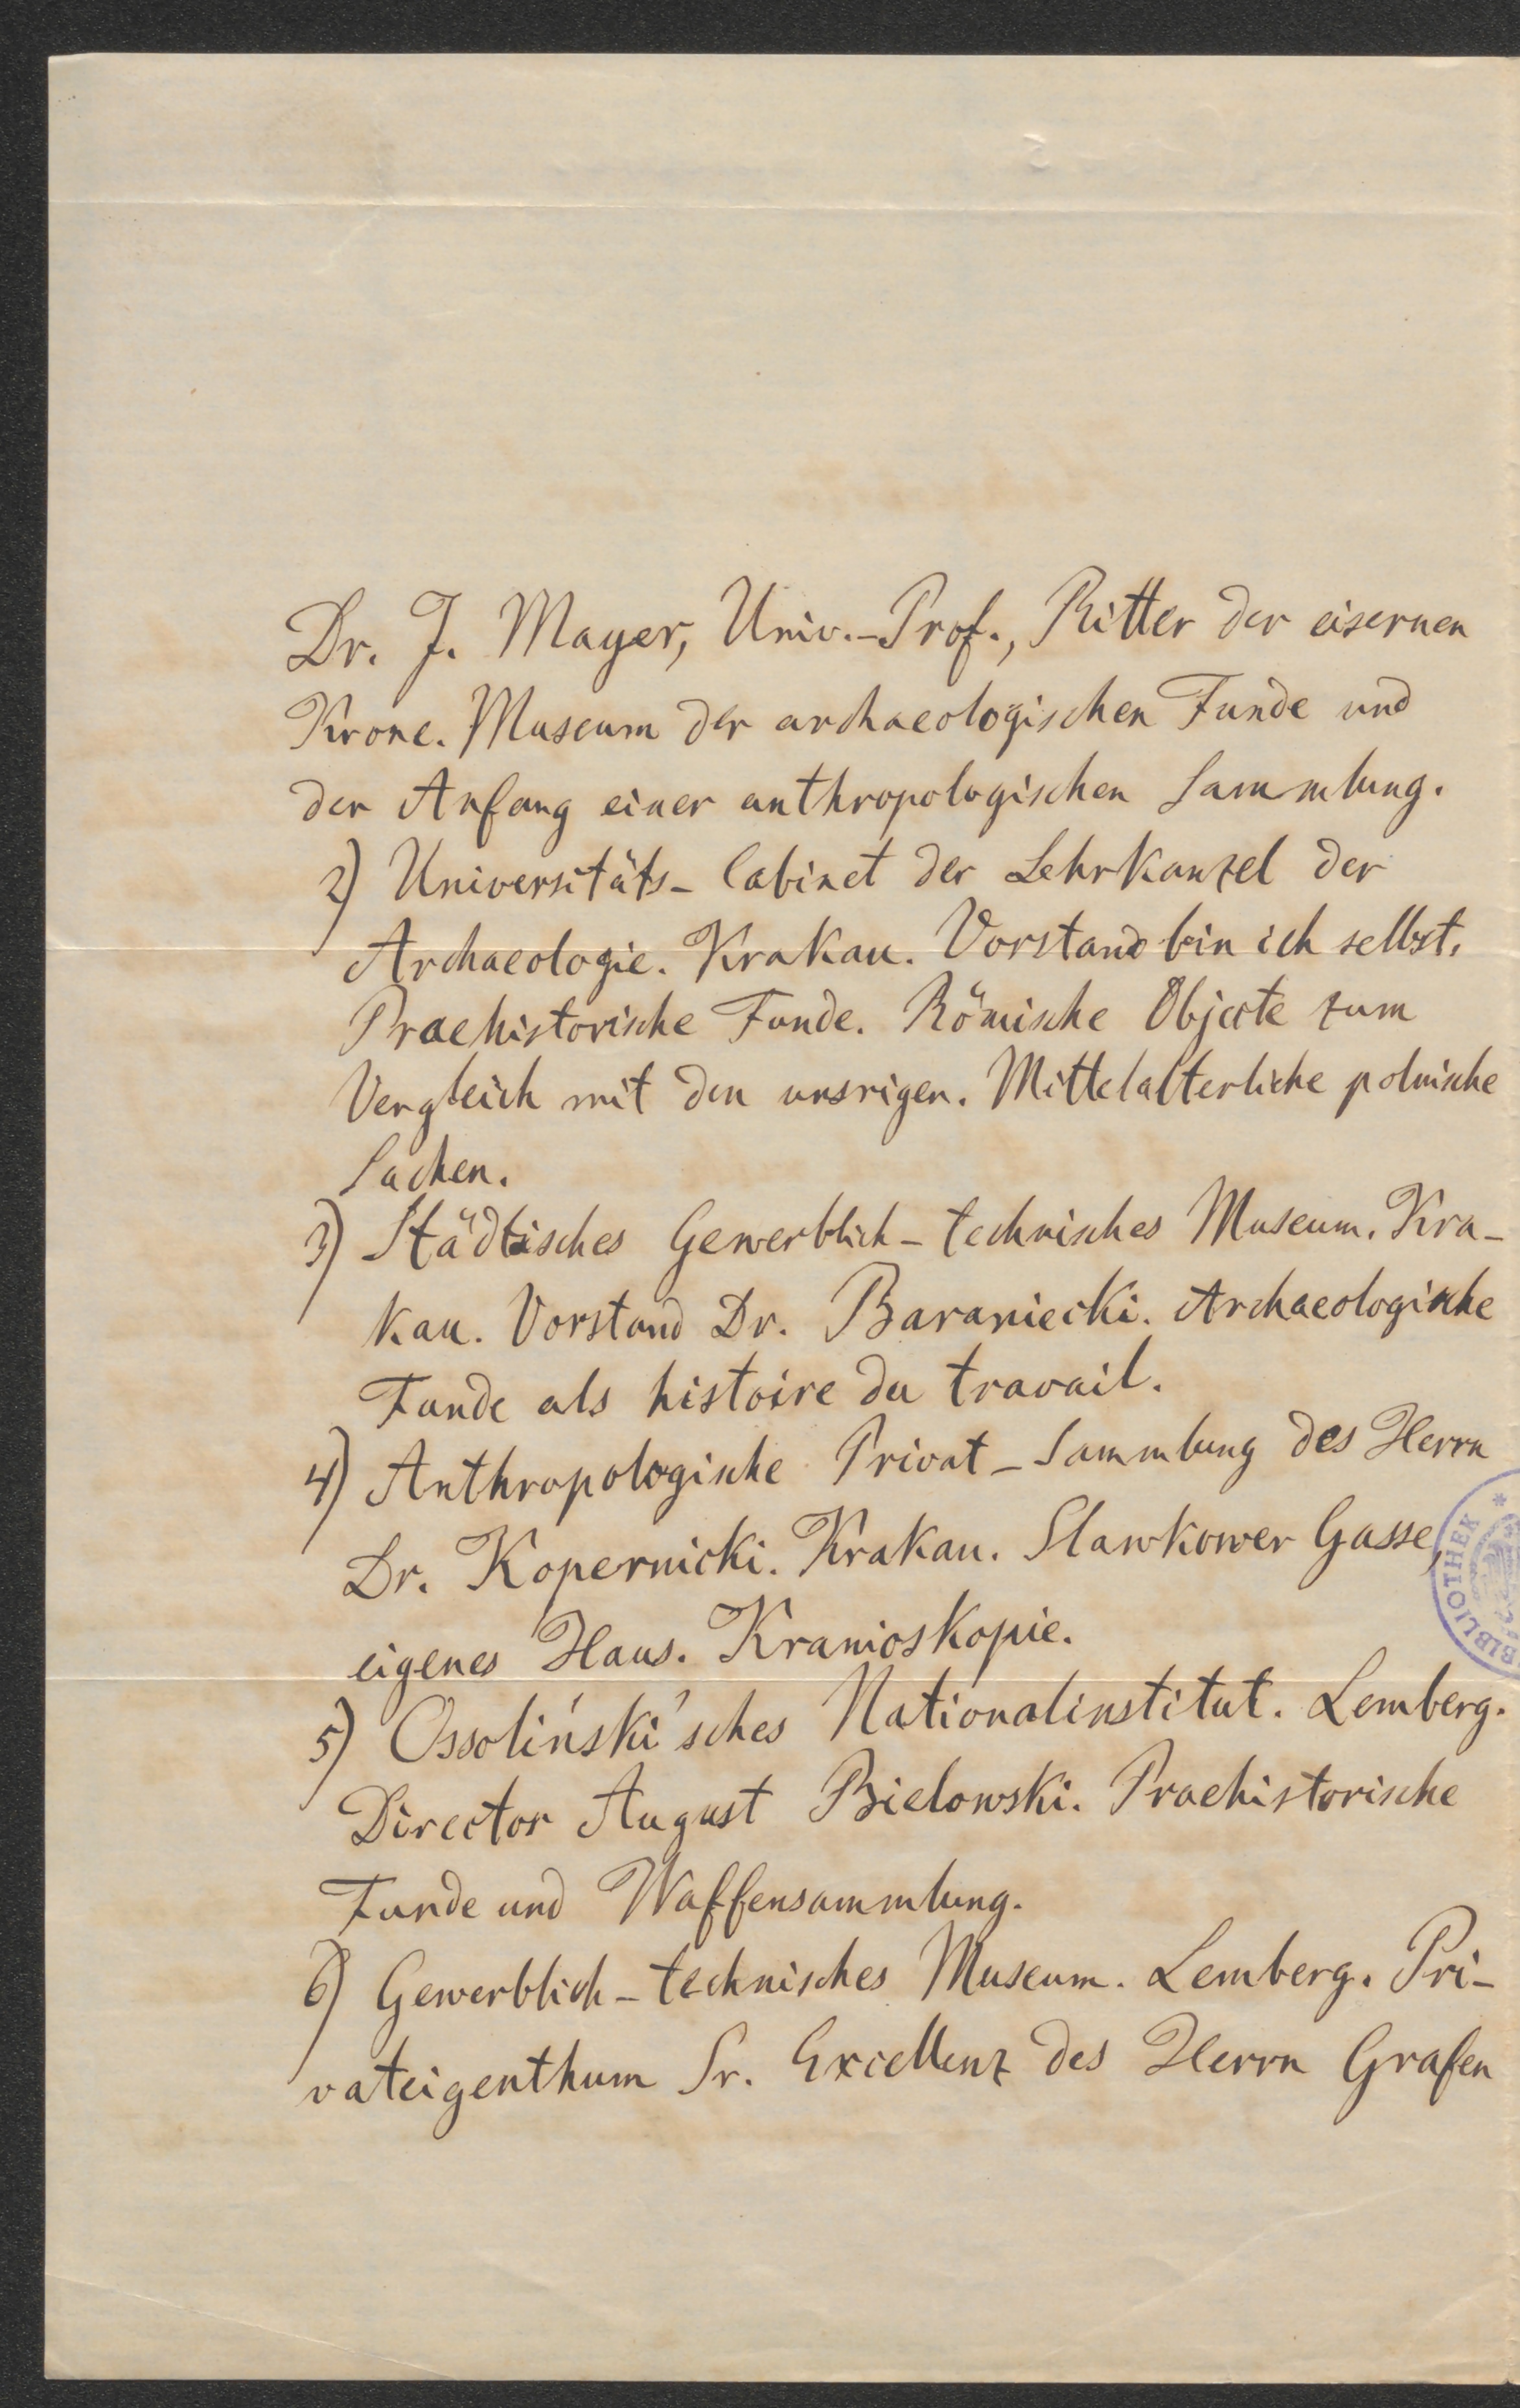 Dr. J. Mayer, Univ.-Prof., Ritter der eisernen
Krone. Museum der archaeologischen Funde und
der Anfang einer anthropologischen Sammlung.
2) Universitäts-Cabinet der Lehrkanzel der
Archaeologie. Krakau. Vorstand bin ich selbst.
Praehistorische Funde. Römische Objecte zum
Vergleich mit den unsrigen. Mittelalterliche polnische
Sachen.
3) Städtisches Gewerblich-technisches Museum. Kra-
kau. Vorstand Dr. Baraniecki. Archaeologische
Funde als histoire du travail.
4) Anthropologische Privat-Sammlung des Herrn
Dr. Kopernicki. Krakau. Slawkower Gasse,
eigenes Haus. Kranioskopie.
BIBLIOTHEK *
5) Ossoliński'sches Nationalinstitut. Lemberg.
Director August Bielowski. Praehistorische
Funde und Waffensammlung.
6) Gewerblich-technisches Museum. Lemberg. Pri-
vateigenthum Sr. Excellenz des Herrn Grafen